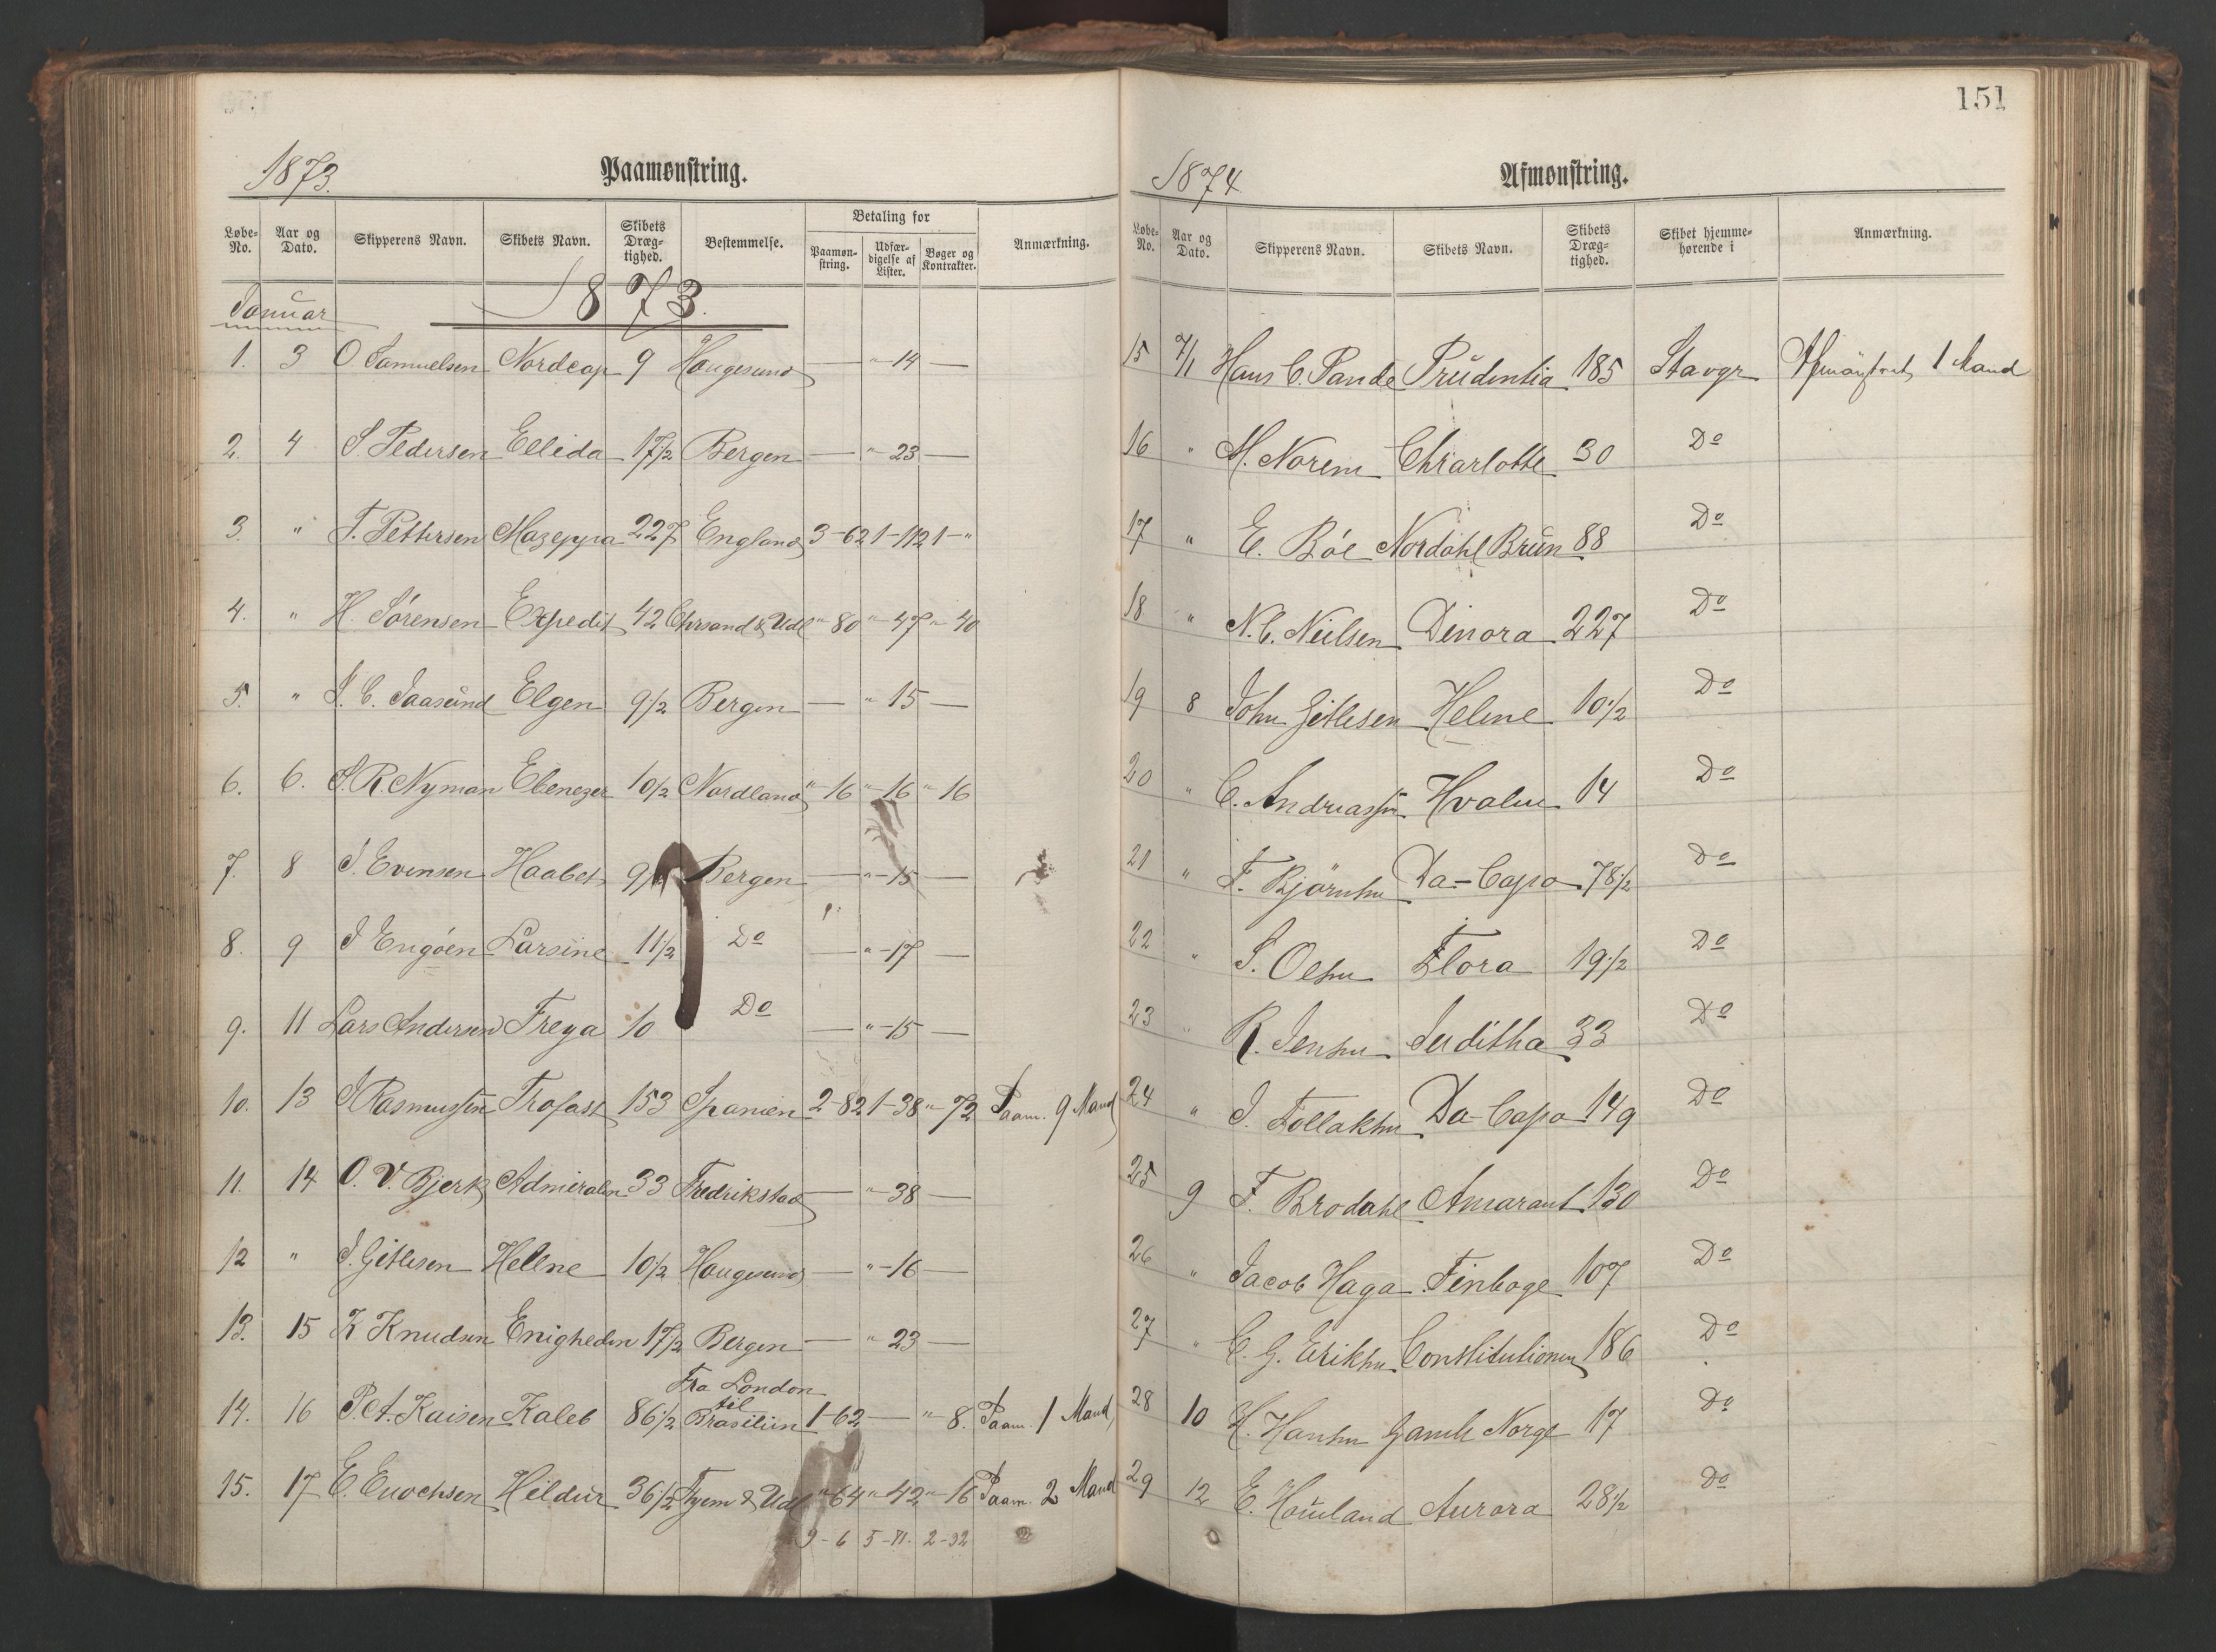 1873.
Paamønstring.
Løbe-No. Aar og Dato. Skipperens Navn. Skibets Navn. Skibets Dræg-tighed. Bestemmelse. Betaling for Paamøn-string. Udfær-digelse af Lister. Bøger og Kontrakter. Anmærkning.
1873.
Januar
1. 3 O Samuelsen Nordcap 9 Haugesund — " 14 —
2. 4 S. Pedersen Ellida 17 1/2 Bergen — " 23 —
3. " T. Pettersen Mazeppa 227 England 3-62 1-112 1-"
4. " H. Sörensen Expedit 42 Chrsand & Udl "-80 "-47 "-40
5. " J. C. Jaasund Elgen 9 1/2 Bergen — " 15 —
6. 6. J. R. Nyman Ebenezer 10 1/2 Nordland "-16 "-16 "-16
7. 8 J. Evensen Haabet 9 1/2 Bergen — "-15 —
8. 9 J Engöen Larsine 11 1/2 Do — "-17 —
9. 11 Lars Andersen Freya 10 Do — "-15 —
10. 13 J Rasmussen Trofast 153 Spanien 2-82 1-38 "-72 Paam. 9 Mand
11. 14 O. V. Bjerk Admiralen 33 Fredrikstad — "-38 —
12 " J. Gitlesen Helene 10 1/2 Haugesund — "-16 —
13. 15 K Knudsen Enigheden 17 1/2 Bergen — " 23 —
14. 16 P. A. Kaisen Kaleb 86 1/2 Fra London til Brasilien 1-62 — "-8. Paam. 1 Mand
15. 17 E. Enochsen Hildur 36 1/2 Hjem & Udl "-64 "-42 "-16 Paam. 2 Mand
9-6 5-11. 2-32
151
1874
Afmønstring.
Løbe-No. Aar og Dato. Skipperens Navn. Skibets Navn. Skibets Dræg-tighed. Skibet hjemme-hørende i Anmærkning.
15 7/1 Hans C. Pande Prudentia 185 Stavgr Afmönstret 1 Mand
16 " M. Norem Charlotte 30 Do
17 " E. Böe Nordahl Brun 88 Do
18 " N. C. Nielsen Dinora 227 Do
19 8 John Gitlesen Helene 10 1/2 Do
20 " C. Andreassen Hvalen 14 Do
21 " F. Björnsen Da-Capo 78 1/2 Do
22 " S. Olsen Flora 19 1/2 Do
23 " R. Jensen Juditha 33 Do
24 " J. Follaksen Da-Capo 149 Do
25 9 F. Brodahl Amarant 130 Do
26 " Jacob Haga Finboge 107 Do
27 " C. G. Eriksen Constitutionen 186 Do
28 10 H. Hansen Gamle Norge 17 Do
29 12 E. Houland Aurora 28 1/2 Do